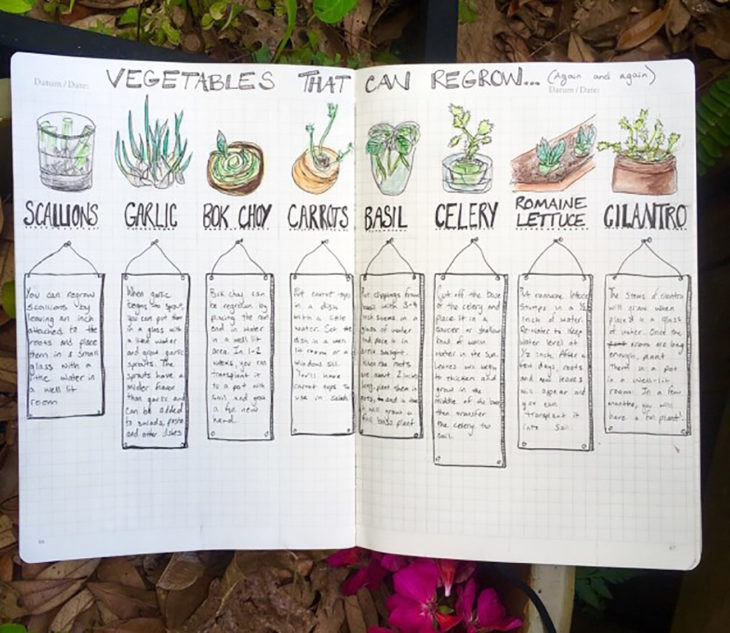 Datum / Date:
VEGETABLES THAT CAN REGROW... (Again and again)
Datum / Date:
SCALLIONS
GARLIC
BOK CHOY
CARROTS
BASIL
CELERY
ROMAINE
LETTUCE
CILANTRO
You can regrow
scallions by
leaving an inch
attached to the
roots and place
them in a small
glass with a
little water in
a well lit
room
When garlic
begins to sprout,
you can put them
in a glass with
a little water
and grow garlic
sprouts. The
sprouts have a
milder flavor
than garlic and
can be added
to salads, pasta
and other dishes
Bok choi can
be regrown by
placing the root
end in water
in a well lit
area. In 1-2
weeks, you can
transplant it
to a pot with
soil and grow
a full new
head.
Put carrot tops
in a dish
with a little
water. Set the
dish in a well
lit room or a
window sill.
You'll have
carrot tops to
use in salads
Put clippings from
basil with 3-4
inch stems in a
glass of water
and place it in
direct sunlight.
When the roots
are about 2 inches
long, plant them in
pots, and
it will grow a
full basil plant.
Cut off the base
of the celery and
place it in a
saucer or shallow
bowl of warm
water in the sun.
Leaves will begin
to thicken and
grow in the
middle of the base
then transfer
the celery to
soil.
Put romaine lettuce
stumps in a ½
inch of water.
Re-water to keep
water level at
½ inch. After a
few days, roots
and new leaves
will appear and
you can
transplant it
into soil.
The stems of cilantro
will grow when
placed in a glass
of water. Once the
roots are long
enough, plant
them in a pot
in a well-lit
room. In a few
months, you will
have a full plant!
66
67